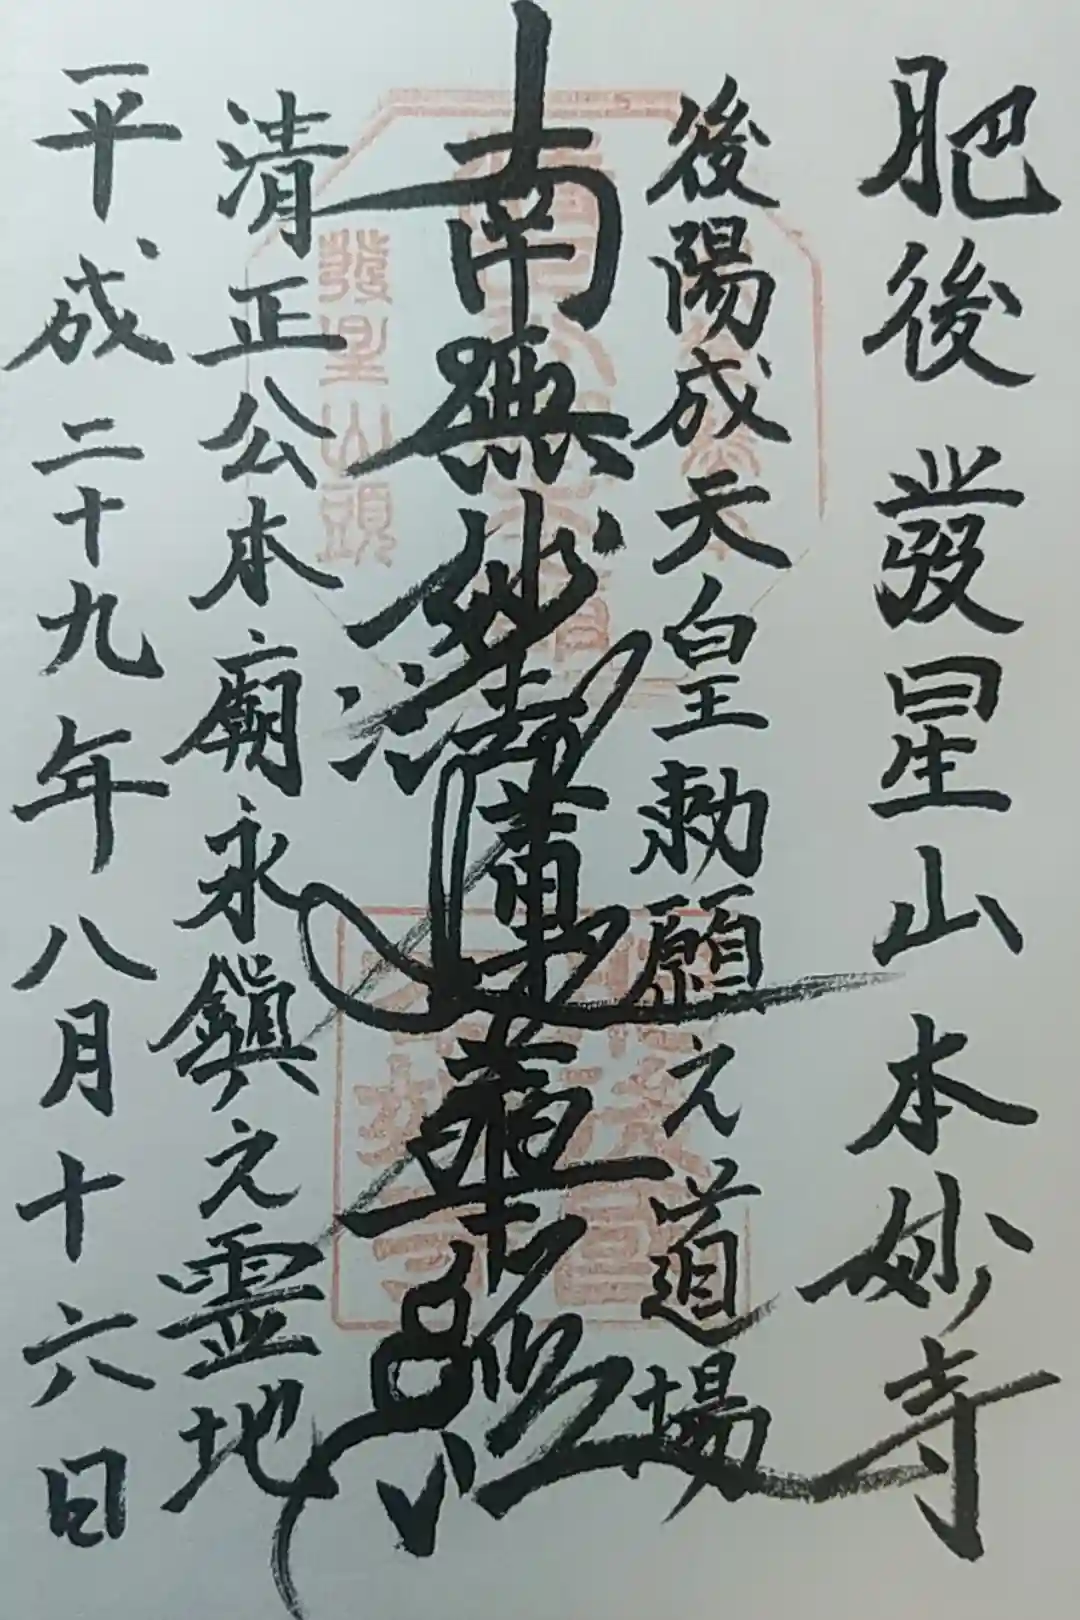 肥後 發星山 本妙寺
後陽成天皇勅願之道場
南無妙法蓮華經
清正公本廟永鎮之霊地
平成二十九年八月十六日
發星山頭